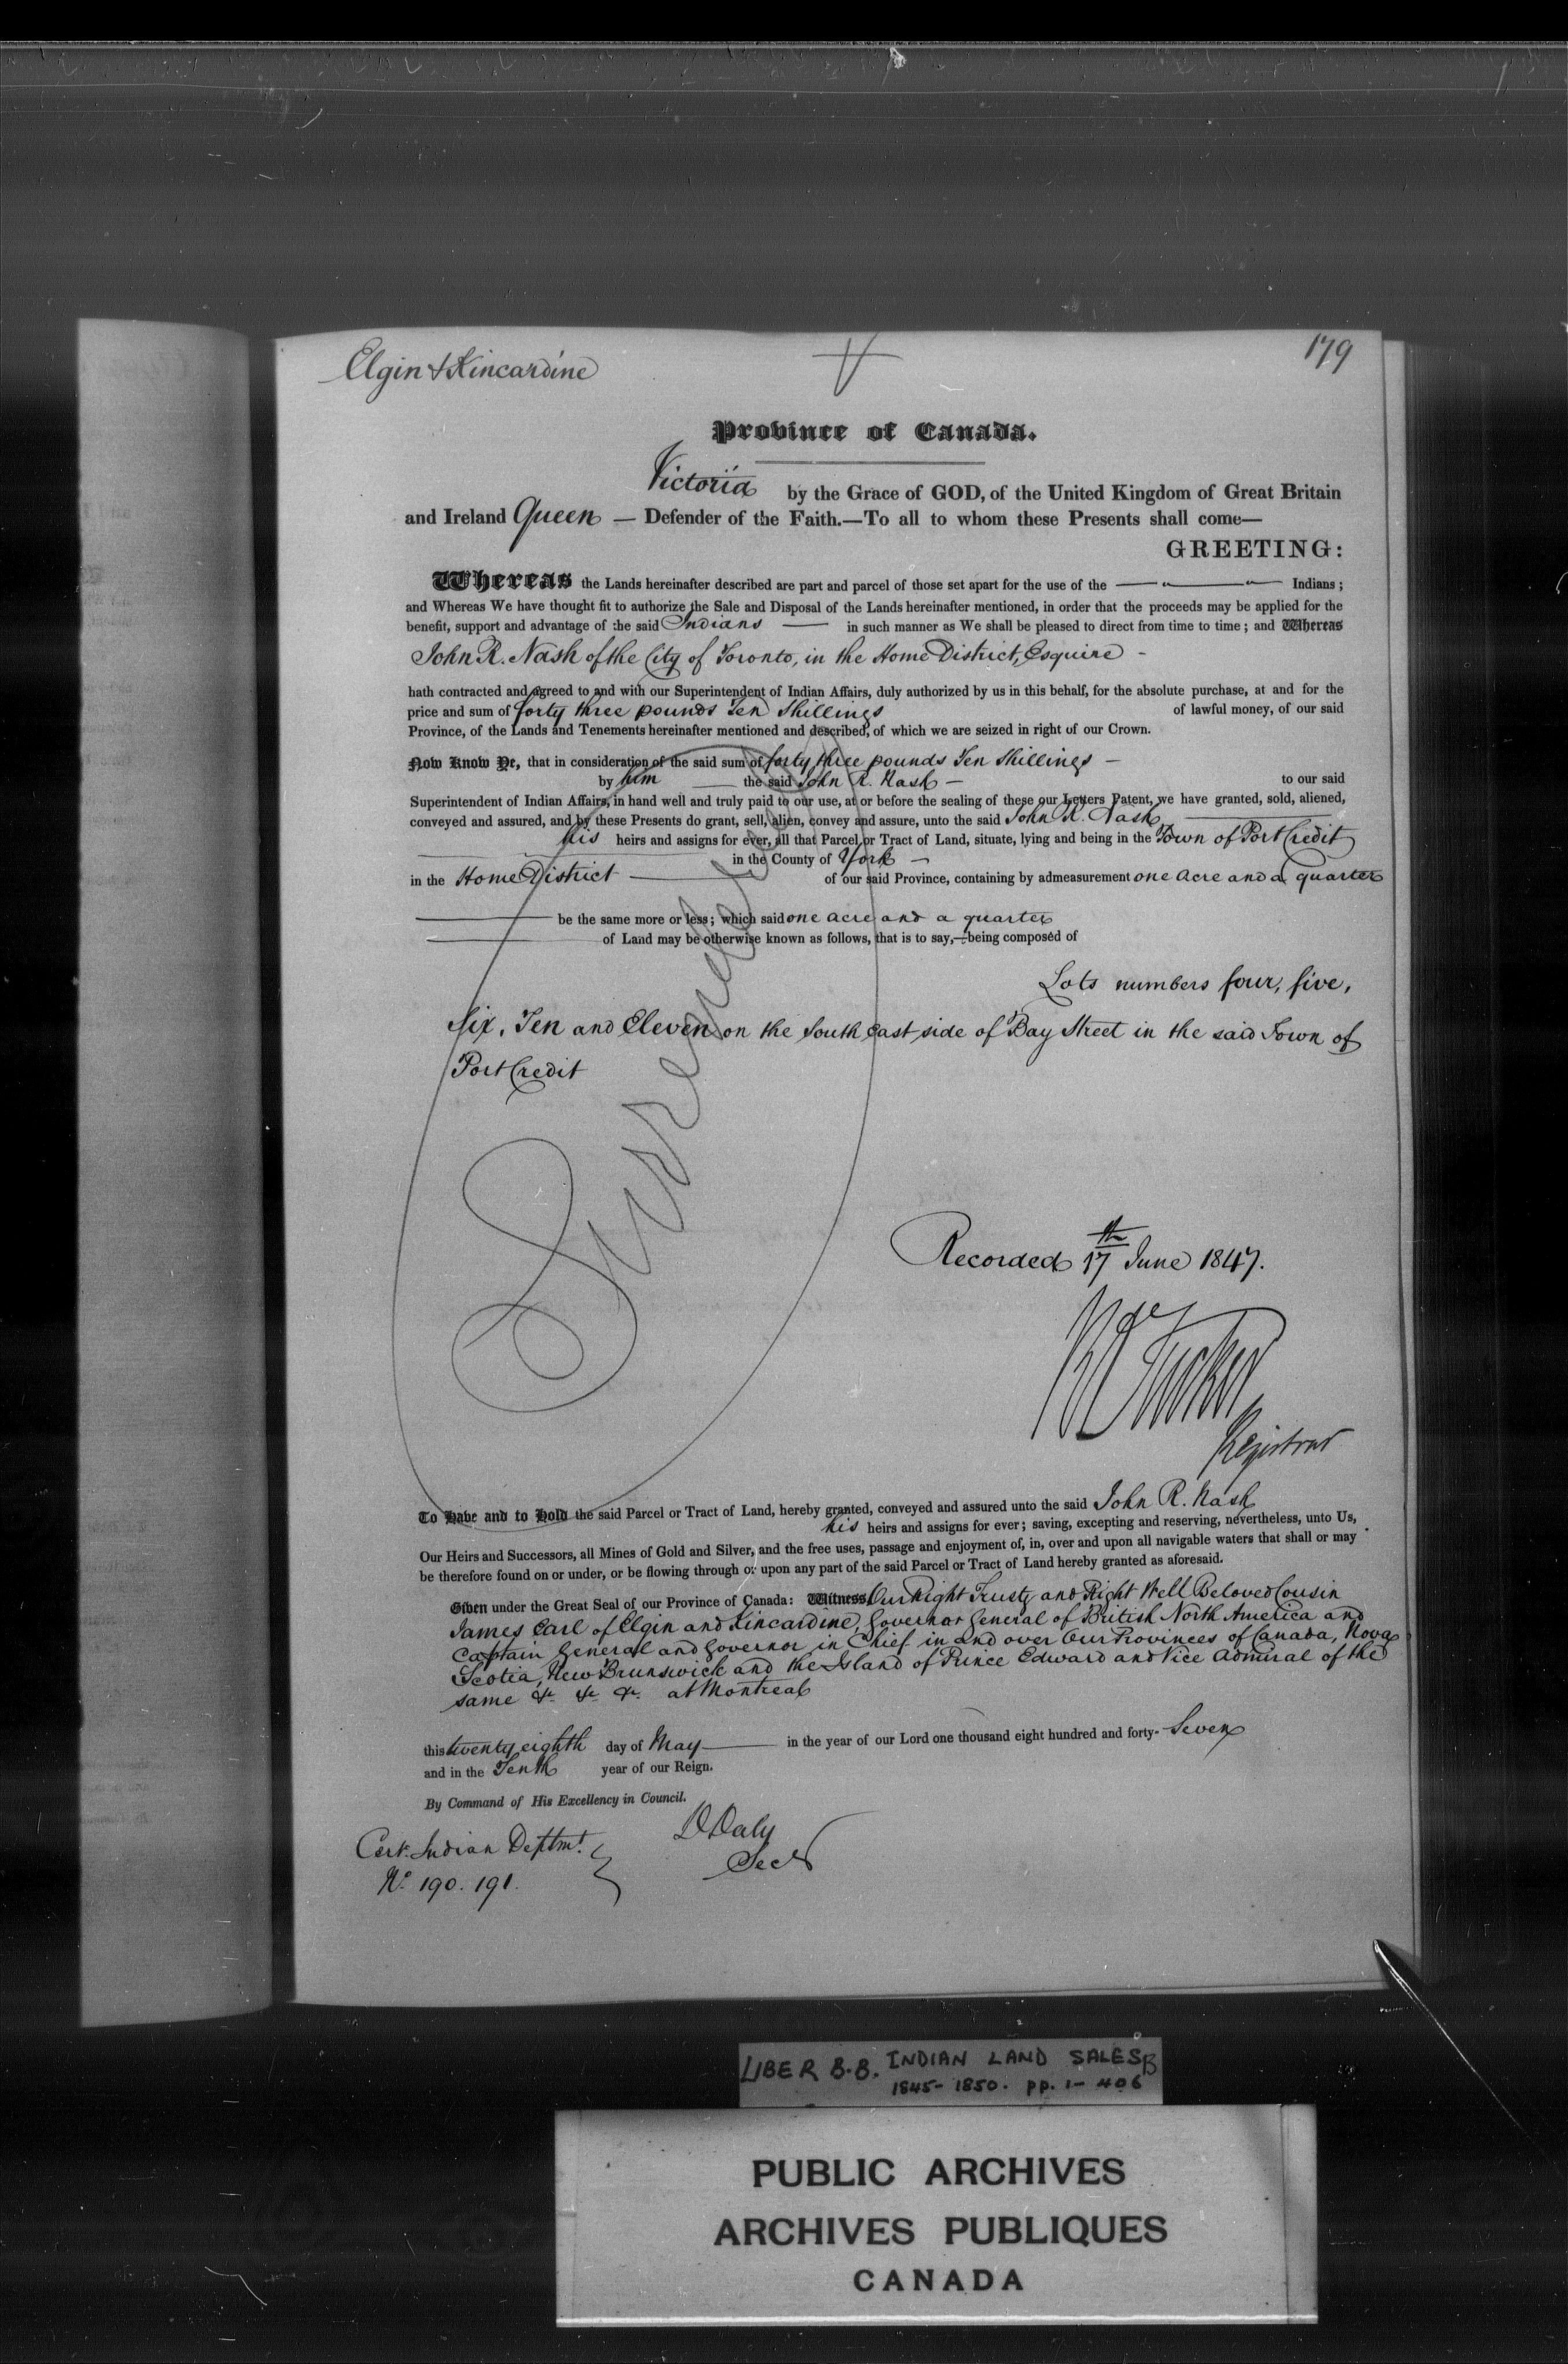 Elgin & Kincardine
179
Province of Canada.
Victoria by the Grace of GOD, of the United Kingdom of Great Britain
and Ireland Queen — Defender of the Faith.—To all to whom these Presents shall come—
GREETING:
Whereas the Lands hereinafter described are part and parcel of those set apart for the use of the — " — " — Indians;
and Whereas We have thought fit to authorize the Sale and Disposal of the Lands hereinafter mentioned, in order that the proceeds may be applied for the
benefit, support and advantage of the said Indians — in such manner as We shall be pleased to direct from time to time; and Whereas
John R. Nash of the City of Toronto, in the Home District, Esquire -
hath contracted and agreed to and with our Superintendent of Indian Affairs, duly authorized by us in this behalf, for the absolute purchase, at and for the
price and sum of forty three pounds Ten Shillings of lawful money, of our said
Province, of the Lands and Tenements hereinafter mentioned and described, of which we are seized in right of our Crown.
Now Know Ye, that in consideration of the said sum of forty three pounds Ten Shillings —
by him — the said John R. Nash — to our said
Superintendent of Indian Affairs, in hand well and truly paid to our use, at or before the sealing of these our Letters Patent, we have granted, sold, aliened,
conveyed and assured, and by these Presents do grant, sell, alien, convey and assure, unto the said John R. Nash —
his heirs and assigns for ever, all that Parcel or Tract of Land, situate, lying and being in the Town of Port Credit
— in the County of York —
in the Home District — of our said Province, containing by admeasurement one Acre and a quarter
— be the same more or less; which said one acre and a quarter
— of Land may be otherwise known as follows, that is to say,—being composed of
Lots numbers four, five,
Six, Ten and Eleven on the South east side of Bay Street in the said Town of
Port Credit
Surrendered
Recorded 17th June 1847.
Tucker
Registrar
To Have and to Hold the said Parcel or Tract of Land, hereby granted, conveyed and assured unto the said John R. Nash
his heirs and assigns for ever; saving, excepting and reserving, nevertheless, unto Us,
Our Heirs and Successors, all Mines of Gold and Silver, and the free uses, passage and enjoyment of, in, over and upon all navigable waters that shall or may
be therefore found on or under, or be flowing through or upon any part of the said Parcel or Tract of Land hereby granted as aforesaid.
Given under the Great Seal of our Province of Canada: Witness, Our Right Trusty and Right Well Beloved Cousin
James Earl of Elgin and Kincardine, Governor General of British North America and
Captain General and Governor in Chief in and over Our Provinces of Canada, Nova
Scotia, New Brunswick and the Island of Prince Edward and Vice Admiral of the
same &c &c &c. at Montreal
this twenty eighth day of May — in the year of our Lord one thousand eight hundred and forty-Seven
and in the Tenth year of our Reign.
By Command of His Excellency in Council.
D Daly
Secy
Cert. Indian Deptmt.
No. 190. 191.
LIBER B.B. INDIAN LAND SALES B
1845-1850. pp. 1-406
PUBLIC ARCHIVES
ARCHIVES PUBLIQUES
CANADA